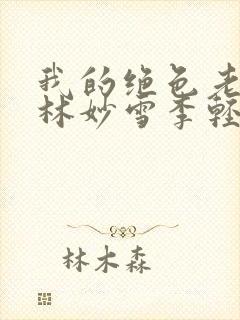 我的绝色老
林妙雪李轻
林木森